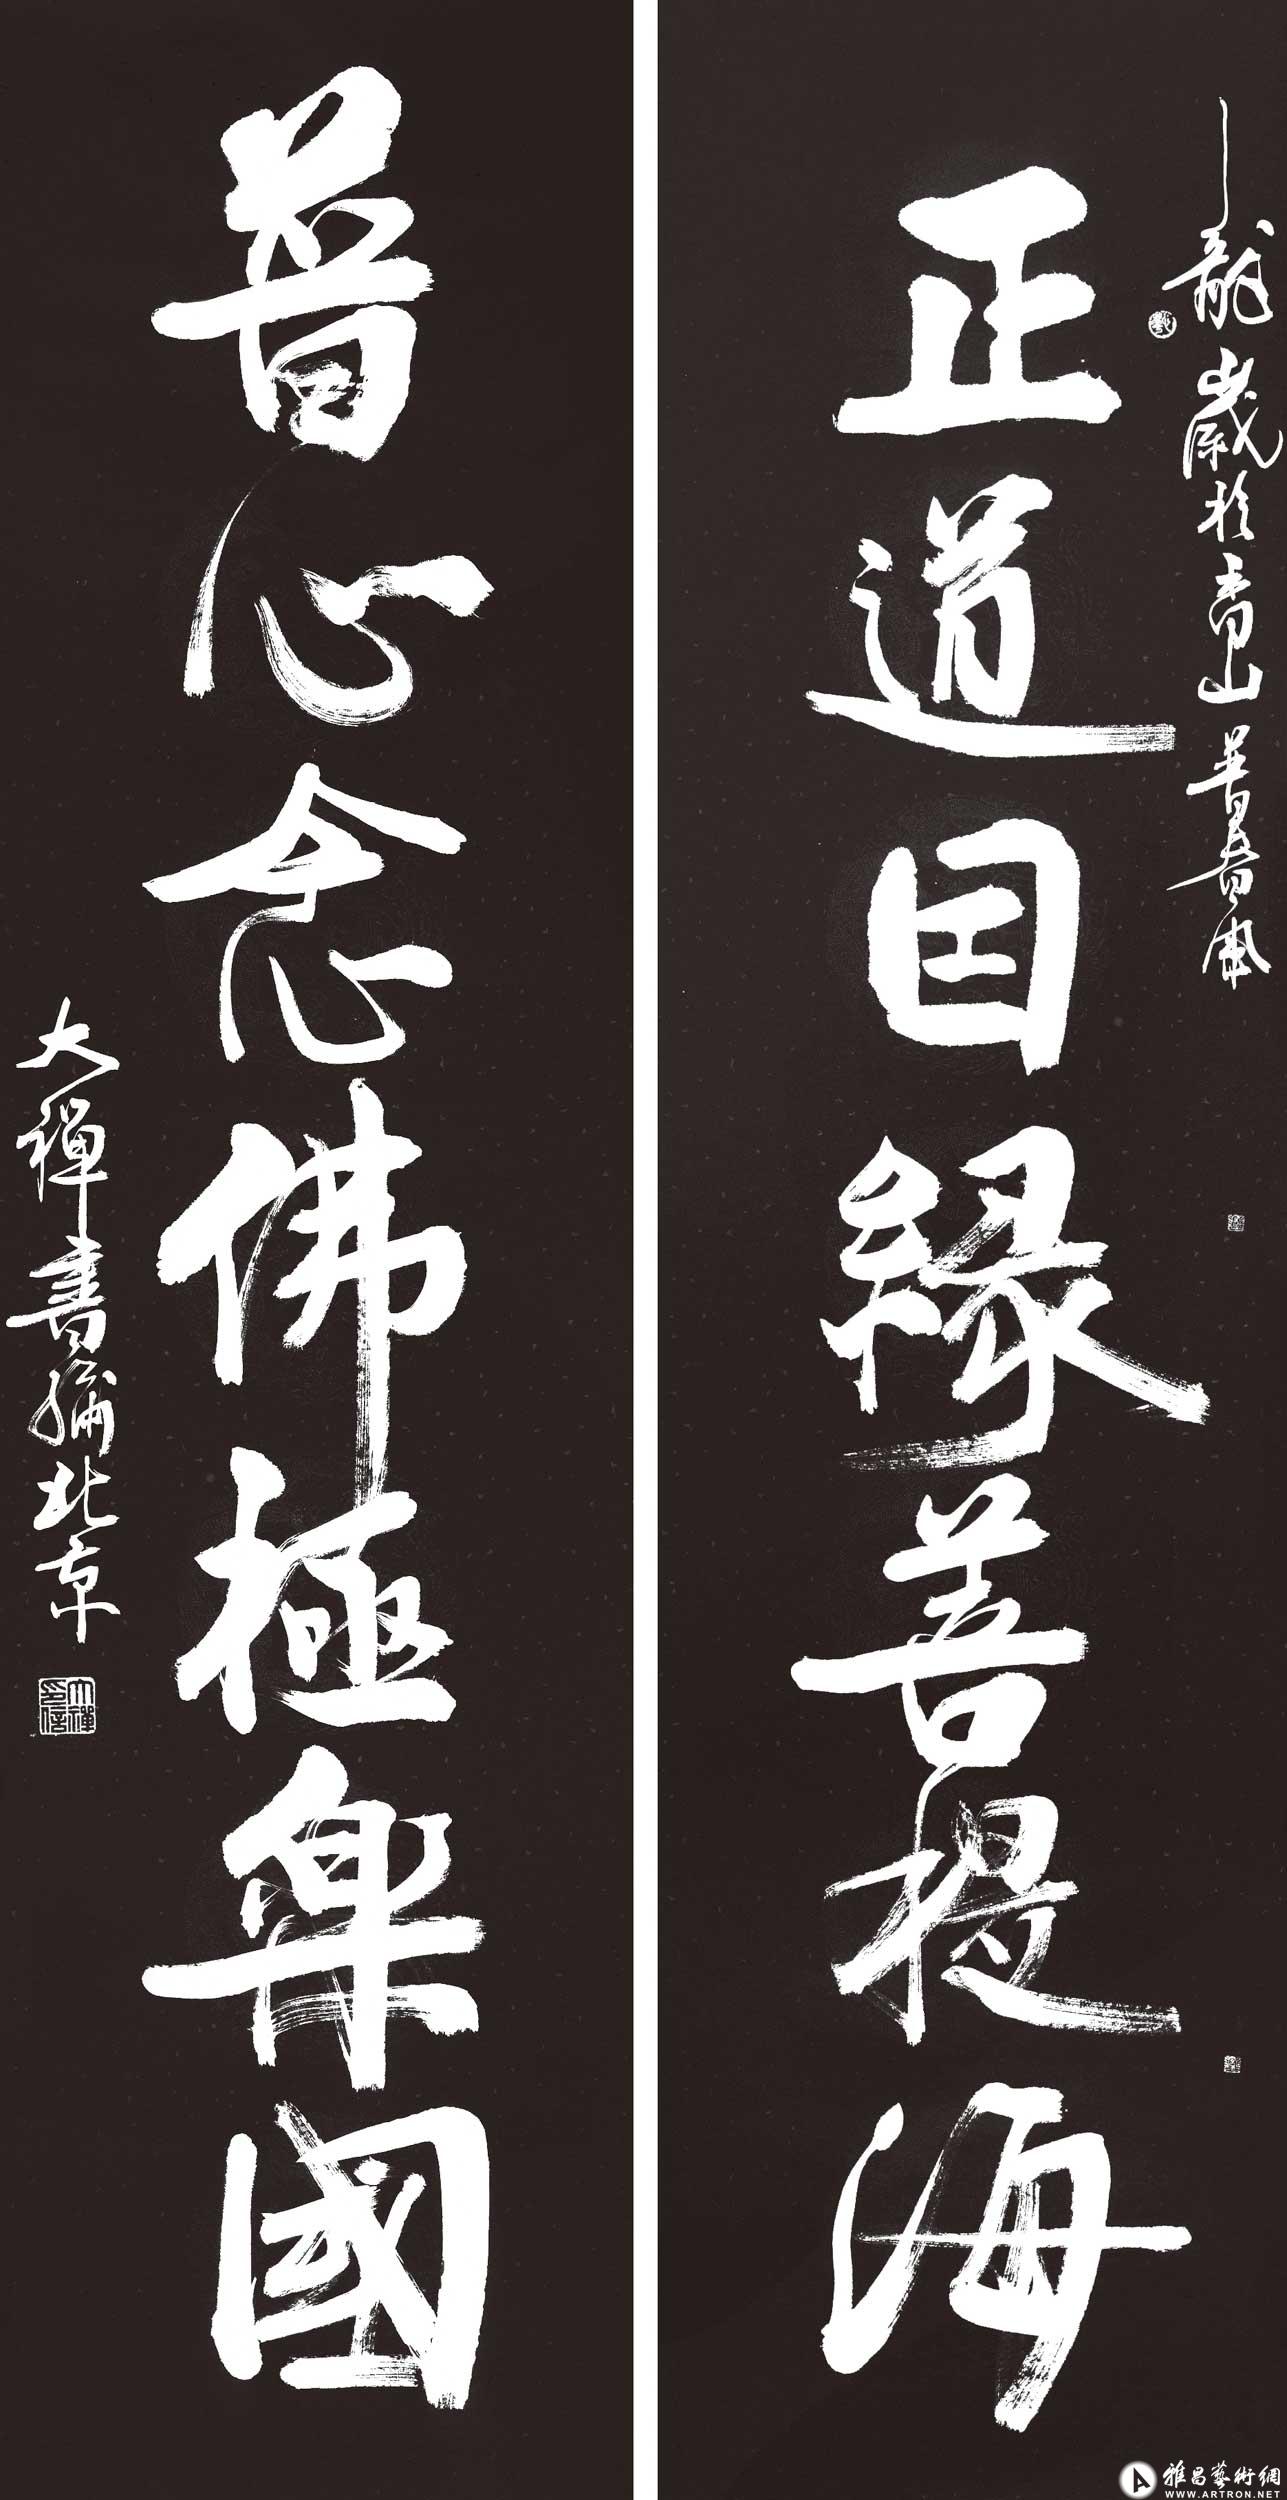 龍歲於山
正道因緣菩提海
普心念佛極樂國
大禪書於北京
大禪印信
雅昌藝術網
WWW.ARTRON.NET